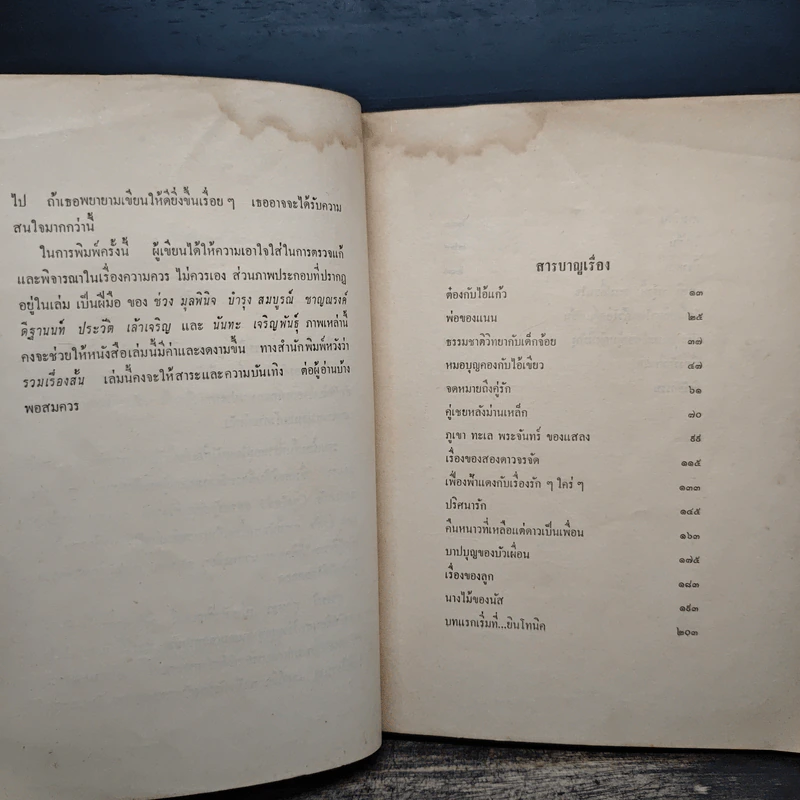 ไป ถ้าเธอพยายามเขียนให้ดียิ่งขึ้นเรื่อย ๆ เธออาจจะได้รับความ
สนใจมากกว่านี้
ในการพิมพ์ครั้งนี้ ผู้เขียนได้ให้ความเอาใจใส่ในการตรวจแก้
และพิจารณาในเรื่องความควร ไม่ควรเอง ส่วนภาพประกอบที่ปรากฏ
อยู่ในเล่ม เป็นฝีมือ ของ ช่วง มุลพินิจ บำรุง สมบูรณ์ ชาญณรงค์
ดิฐานนท์ ประวัติ เล้าเจริญ และ นันทะ เจริญพันธุ์ ภาพเหล่านี้
คงจะช่วยให้หนังสือเล่มนี้มีค่าและงดงามขึ้น ทางสำนักพิมพ์หวังว่า
รวมเรื่องสั้น เล่มนี้คงจะให้สาระและความบันเทิง ต่อผู้อ่านบ้าง
พอสมควร
สารบาญเรื่อง
ต๋องกับไอ้แก้ว ๑๓
พ่อของแนน ๒๕
ธรรมชาติวิทยากับเด็กจ้อย ๓๗
หมอบุญคองกับไอ้เขียว ๔๗
จดหมายถึงคู่รัก ๖๑
คู่เชยหลังม่านเหล็ก ๗๐
ภูเขา ทะเล พระจันทร์ ของแสลง ๙๙
เรื่องของสองดาวจรจัด ๑๑๕
เฟื่องฟ้าแดงกับเรื่องรัก ๆ ใคร่ ๆ ๑๓๓
ปริศนารัก ๑๔๕
คืนหนาวที่เหลือแต่ดาวเป็นเพื่อน ๑๖๓
บาปบุญของบัวเผื่อน ๑๗๕
เรื่องของลูก ๑๘๓
นางไม้ของนัส ๑๙๓
บทแรกเริ่มที่...ยินโทนิค ๒๐๓